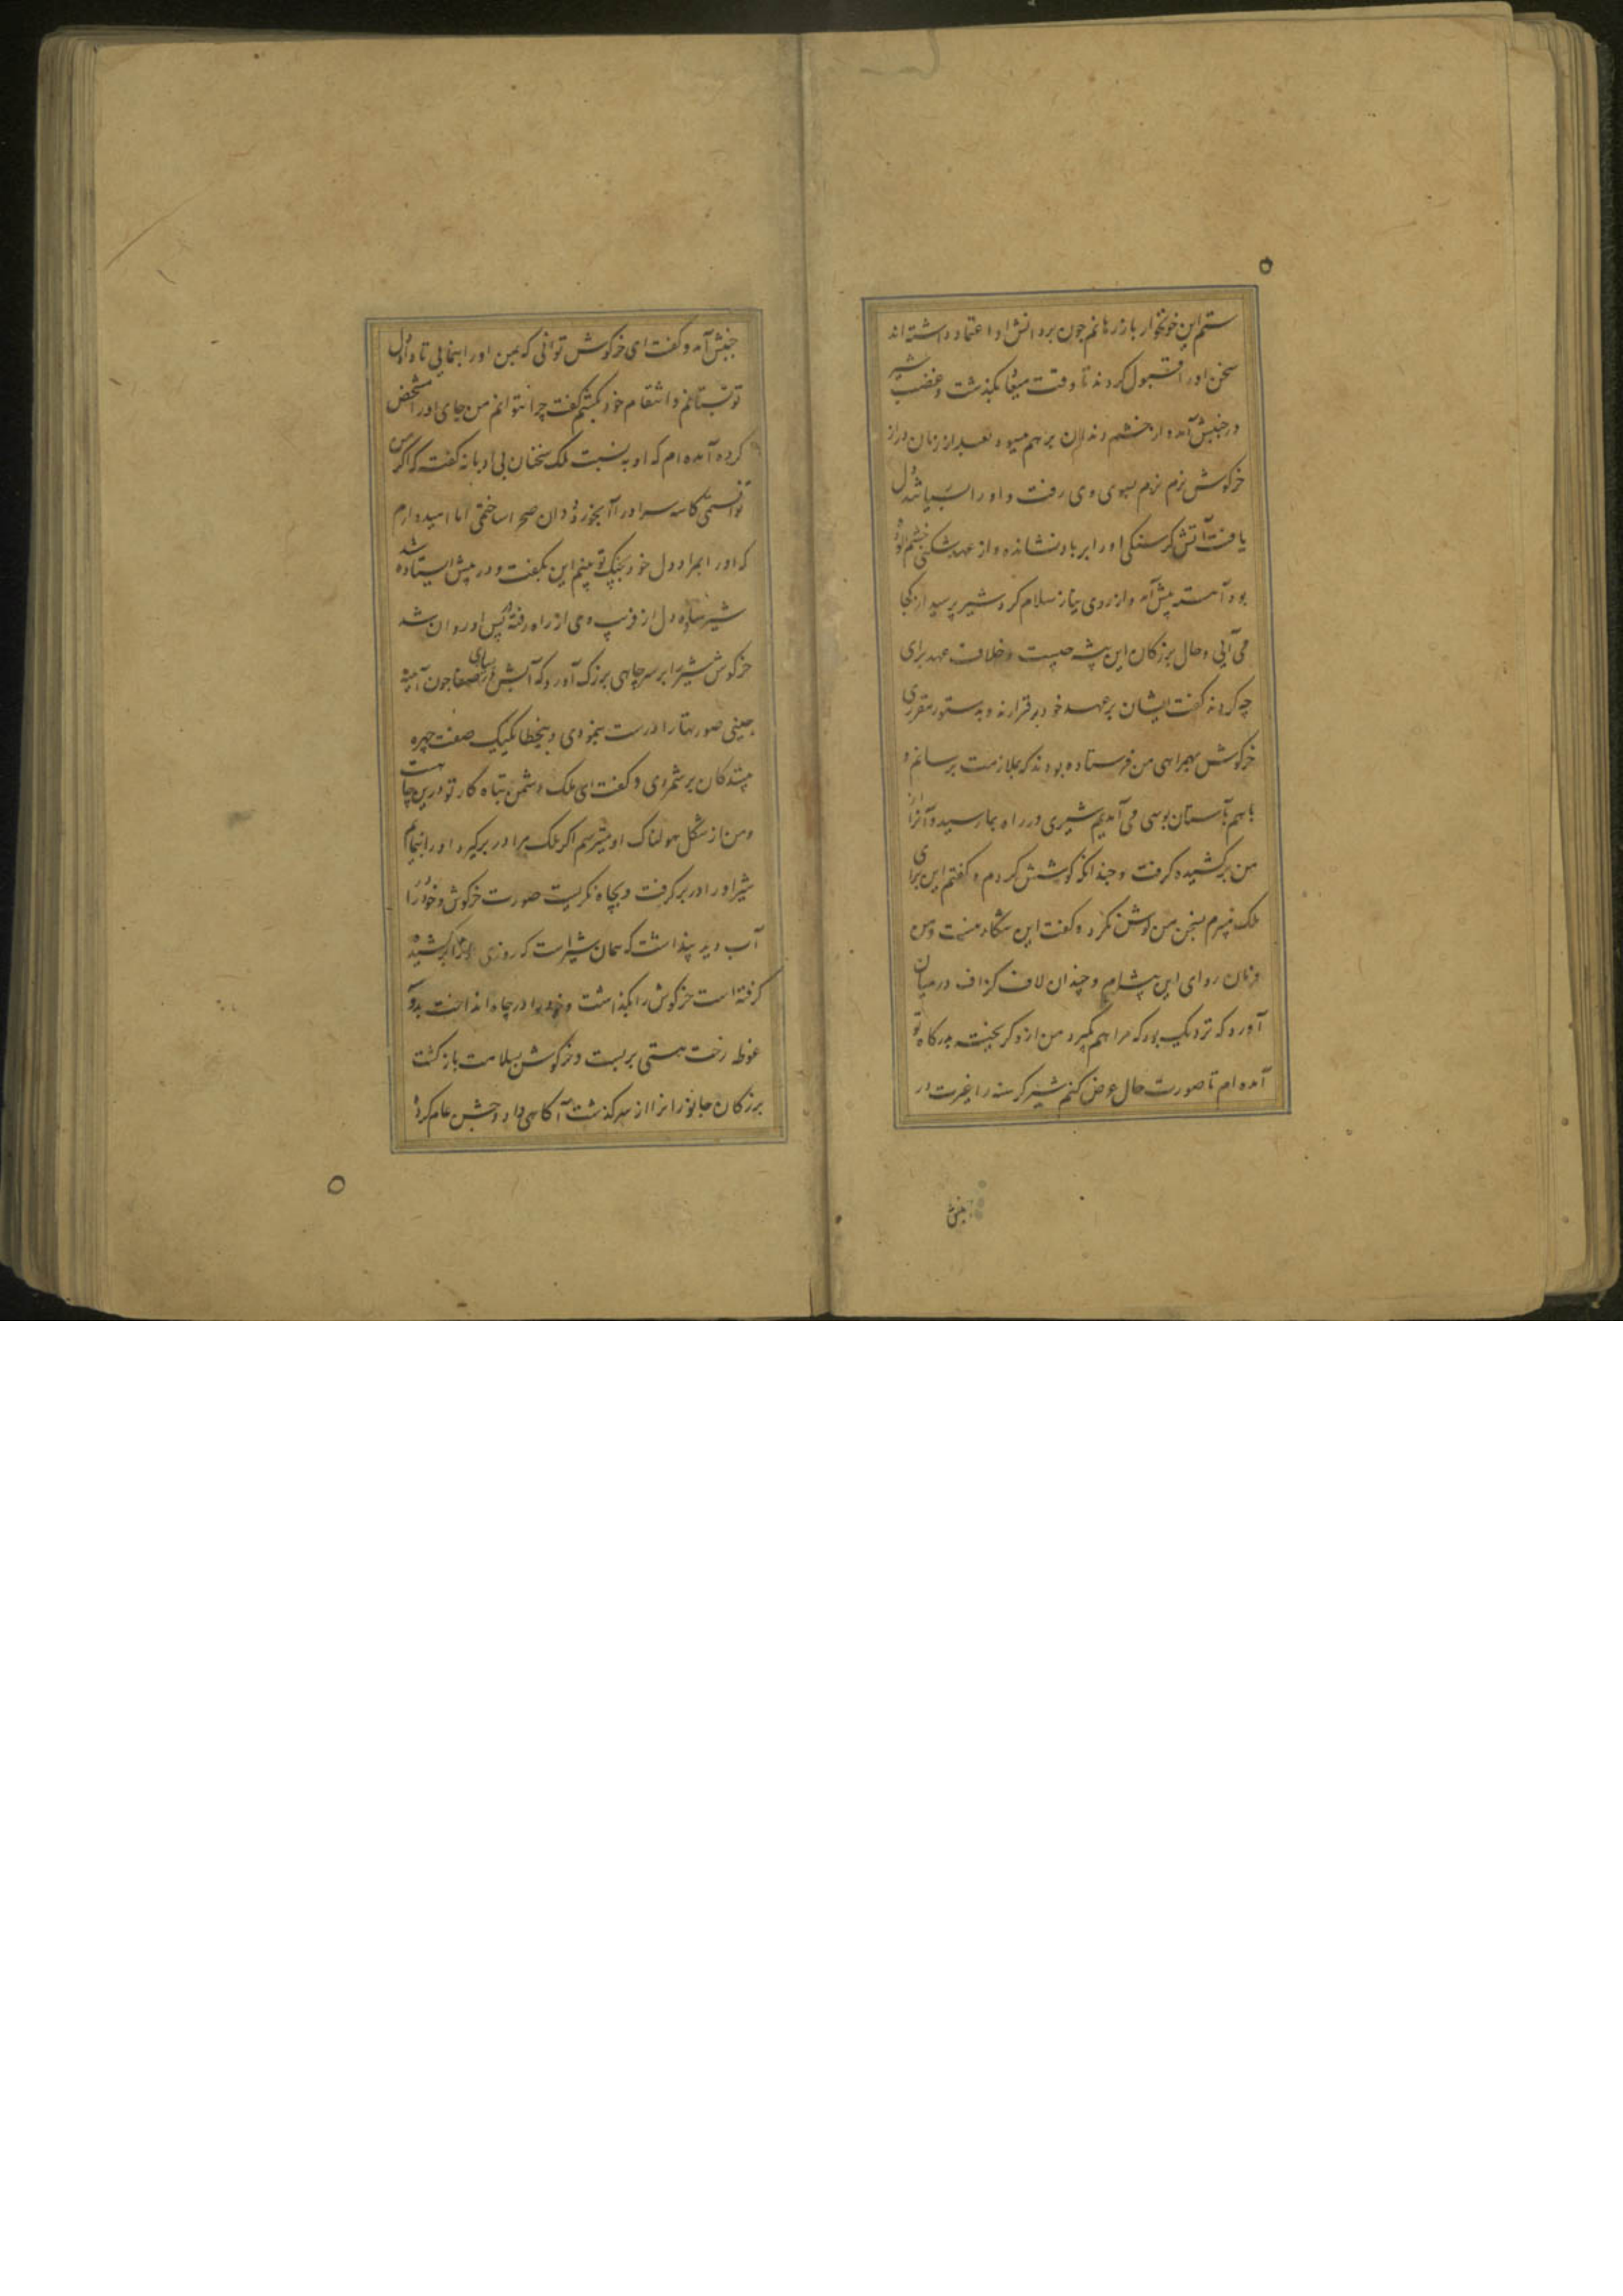 ستم این خونخوار باز رهانم چون بر دانش او اعتماد داشته اند
سخن او را قبول کردند تا وقت میعاد بگذشت و غضب شیر
در جنبش آمده از خشم دندان بر هم میسود بعد از زمان دراز
خرکوش نرم نرم بسوی وی رفت و او را بسیار تنکدل
یافت آتش کرسنکی او را بر باد نشانده و از عهد شکنی خشم آلود
بود آهسته پیش آمد و از روی نیاز سلام کرد شیر پرسید از کجا
می آیی و حال بزرکان این بیشه چیست و خلاف عهد برای
چه کردند کفت ایشان بر عهد خود بر قرارند و بدستور مقرری
خرکوش بهمراهی من فرستاده بودند که بملازمت برسانم و
باهم بآستان بوسی می آمدیم شیری در راه بما رسید و آنرا از
من برکشیده کرفت و چندانکه کوشش کردم و کفتم این برای
ملک میبرم بسخن من کوش نکرد و کفت این شکار منست و من
فرمان روای این بیشه ام و چندان لاف کزاف در میان
آورد که نزدیک بود که مرا هم بکیرد من ازو کریخته بدرکاه تو
آمده ام تا صورت حال عرض کنم شیر کرسنه را غیرت در
جنبش
جنبش آمد و کفت ای خرکوش توانی که بمن او را بنمایی تا داد دل
تو بستانم و انتقام خود بکشم کفت چرا نتوانم من جای او را مشخص
کرده آمده ام که او به نسبت ملک سخنان بی ادبانه کفت که اکر من
توانستمی کاسه سر او را آبخور ددان صحرا ساختمی اما امیدوارم
که او را بمراد دل خود بچنک تو بینم این بکفت و در پیش ایستاده شد
شیر ساده دل از فریب وی از راه رفته پس او روان شد
خرکوش شیر را بر سر چاهی بزرک آورد که آبش از بسیاری صفا چون آینه
چینی صورتها را درست بنمودی و بیخطا یکیک صفت چهره
بینندکان بر شمردی و کفت ای ملک دشمن تباه کار تو درین چاهست
و من از شکل هولناک او میترسم اکر ملک مرا در بر کیرد او را بنمایم
شیر او را در بر کرفت و بچاه نکریست صورت خرکوش و خود را در
آب دید پنداشت که همان شیر است که روزی او را برکشیده
کرفته است خرکوش را بکذاشت و خود را در چاه انداخت بدو
غوطه رخت هستی بربست و خرکوش بسلامت باز کشت
بزرکان جانوران را از سرکذشت آکاهی داد و جشن عام کردند